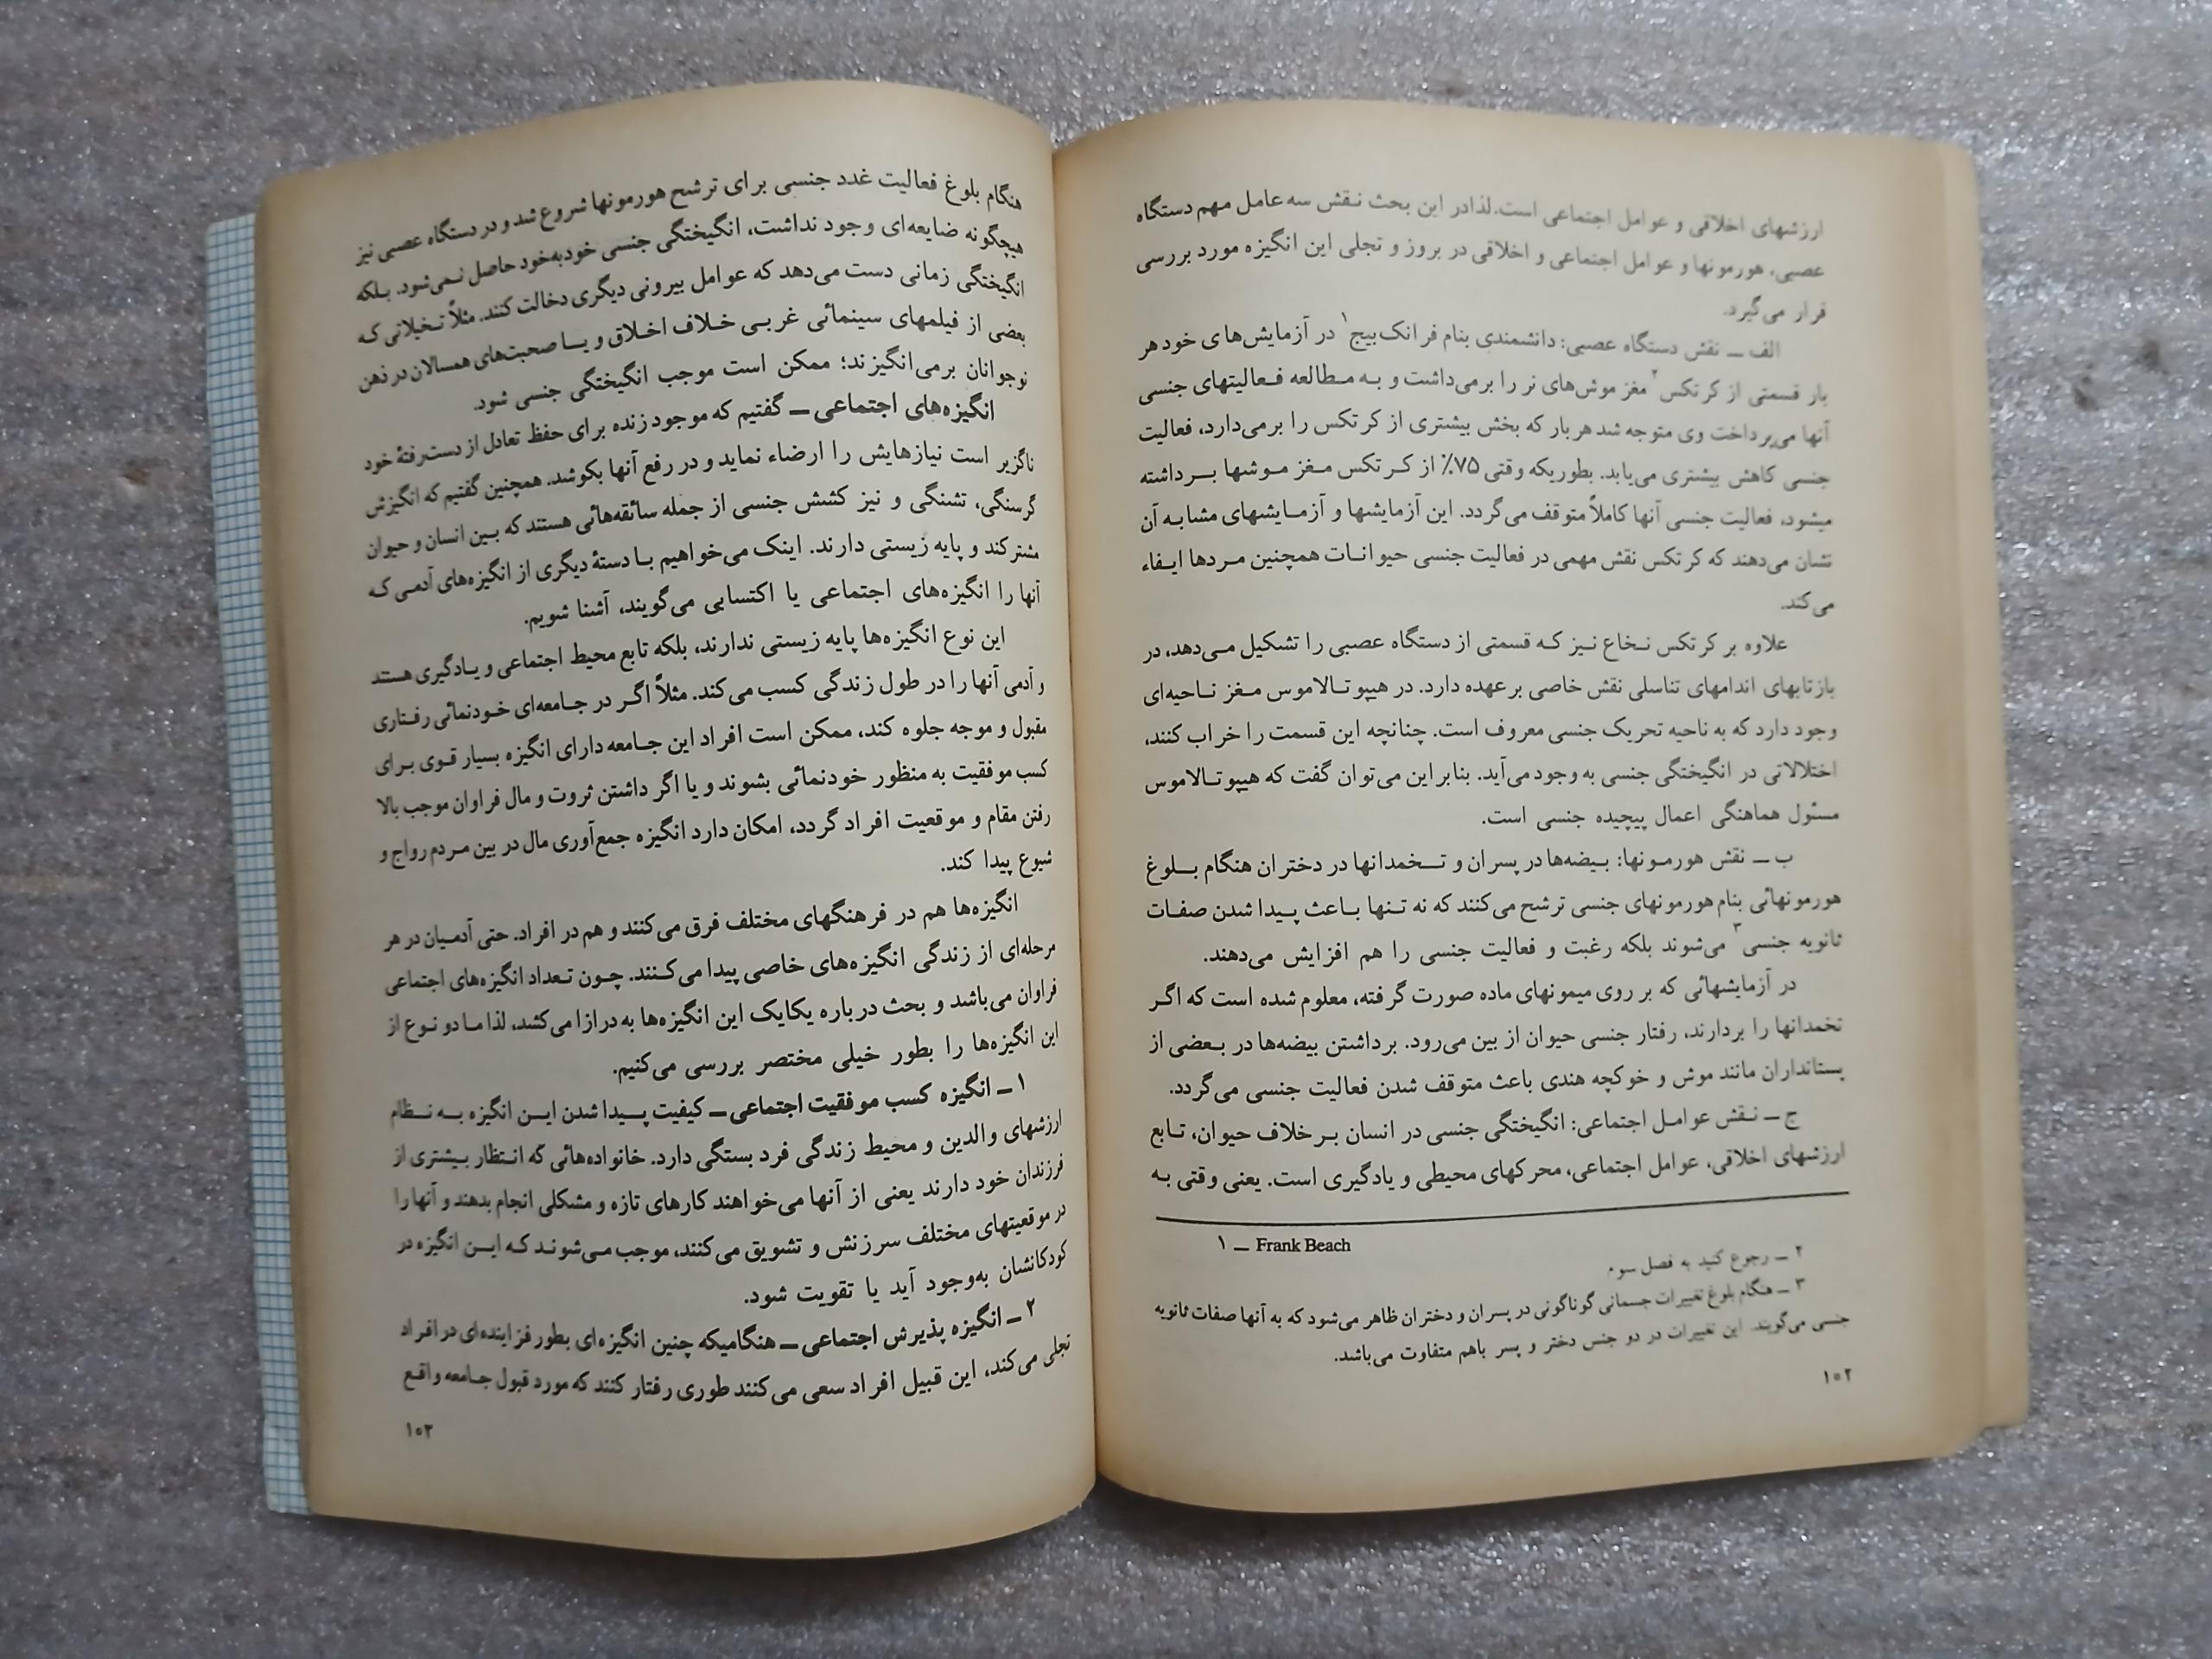 ارزشهای اخلاقی و عوامل اجتماعی است. لذا در این بحث نقش سه عامل مهم دستگاه
عصبی، هورمونها و عوامل اجتماعی و اخلاقی در بروز و تجلی این انگیزه مورد بررسی
قرار می‌گیرد.
الف ــ نقش دستگاه عصبی: دانشمندی بنام فرانک بیچ۱ در آزمایش‌های خود هر
بار قسمتی از کرتکس۲ مغز موش‌های نر را برمی‌داشت و به مطالعه فعالیتهای جنسی
آنها می‌پرداخت وی متوجه شد هر بار که بخش بیشتری از کرتکس را برمی‌دارد، فعالیت
جنسی کاهش بیشتری می‌یابد. بطوریکه وقتی ۷۵٪ از کرتکس مغز موشها برداشته
میشود، فعالیت جنسی آنها کاملاً متوقف می‌گردد. این آزمایشها و آزمایشهای مشابه آن
نشان می‌دهند که کرتکس نقش مهمی در فعالیت جنسی حیوانات همچنین مردها ایفاء
می‌کند.
علاوه بر کرتکس نخاع نیز که قسمتی از دستگاه عصبی را تشکیل می‌دهد، در
بازتابهای اندامهای تناسلی نقش خاصی برعهده دارد. در هیپوتالاموس مغز ناحیه‌ای
وجود دارد که به ناحیه تحریک جنسی معروف است. چنانچه این قسمت را خراب کنند،
اختلالاتی در انگیختگی جنسی به وجود می‌آید. بنابراین می‌توان گفت که هیپوتالاموس
مسئول هماهنگی اعمال پیچیده جنسی است.
ب ــ نقش هورمونها: بیضه‌ها در پسران و تخمدانها در دختران هنگام بلوغ
هورمونهائی بنام هورمونهای جنسی ترشح می‌کنند که نه تنها باعث پیدا شدن صفات
ثانویه جنسی۳ می‌شوند بلکه رغبت و فعالیت جنسی را هم افزایش می‌دهند.
در آزمایشهائی که بر روی میمونهای ماده صورت گرفته، معلوم شده است که اگر
تخمدانها را بردارند، رفتار جنسی حیوان از بین می‌رود. برداشتن بیضه‌ها در بعضی از
پستانداران مانند موش و خوکچه هندی باعث متوقف شدن فعالیت جنسی می‌گردد.
ج ــ نقش عوامل اجتماعی: انگیختگی جنسی در انسان برخلاف حیوان، تابع
ارزشهای اخلاقی، عوامل اجتماعی، محرکهای محیطی و یادگیری است. یعنی وقتی به
۱ ــ Frank Beach
۲ ــ رجوع کنید به فصل سوم
۳ ــ هنگام بلوغ تغییرات جسمانی گوناگونی در پسران و دختران ظاهر می‌شود که به آنها صفات ثانویه
جنسی می‌گویند. این تغییرات در دو جنس دختر و پسر باهم متفاوت می‌باشد.
۱۰۲
هنگام بلوغ فعالیت غدد جنسی برای ترشح هورمونها شروع شد و در دستگاه عصبی نیز
هیچگونه ضایعه‌ای وجود نداشت، انگیختگی جنسی خودبه‌خود حاصل نمی‌شود. بلکه
انگیختگی زمانی دست می‌دهد که عوامل بیرونی دیگری دخالت کنند. مثلاً تخیلاتی که
بعضی از فیلمهای سینمائی غربی خلاف اخلاق و یا صحبت‌های همسالان در ذهن
نوجوانان برمی‌انگیزند؛ ممکن است موجب انگیختگی جنسی شود.
انگیزه‌های اجتماعی ــ گفتیم که موجود زنده برای حفظ تعادل از دست‌رفتهٔ خود
ناگزیر است نیازهایش را ارضاء نماید و در رفع آنها بکوشد. همچنین گفتیم که انگیزش
گرسنگی، تشنگی و نیز کشش جنسی از جمله سائقه‌هائی هستند که بین انسان و حیوان
مشترکند و پایه زیستی دارند. اینک می‌خواهیم با دستهٔ دیگری از انگیزه‌های آدمی که
آنها را انگیزه‌های اجتماعی یا اکتسابی می‌گویند، آشنا شویم.
این نوع انگیزه‌ها پایه زیستی ندارند، بلکه تابع محیط اجتماعی و یادگیری هستند
و آدمی آنها را در طول زندگی کسب می‌کند. مثلاً اگر در جامعه‌ای خودنمائی رفتاری
مقبول و موجه جلوه کند، ممکن است افراد این جامعه دارای انگیزه بسیار قوی برای
کسب موفقیت به منظور خودنمائی بشوند و یا اگر داشتن ثروت و مال فراوان موجب بالا
رفتن مقام و موقعیت افراد گردد، امکان دارد انگیزه جمع‌آوری مال در بین مردم رواج و
شیوع پیدا کند.
انگیزه‌ها هم در فرهنگهای مختلف فرق می‌کنند و هم در افراد. حتی آدمیان در هر
مرحله‌ای از زندگی انگیزه‌های خاصی پیدا می‌کنند. چون تعداد انگیزه‌های اجتماعی
فراوان می‌باشد و بحث درباره یکایک این انگیزه‌ها به درازا می‌کشد، لذا ما دو نوع از
این انگیزه‌ها را بطور خیلی مختصر بررسی می‌کنیم.
۱ ــ انگیزه کسب موفقیت اجتماعی ــ کیفیت پیدا شدن این انگیزه به نظام
ارزشهای والدین و محیط زندگی فرد بستگی دارد. خانواده‌هائی که انتظار بیشتری از
فرزندان خود دارند یعنی از آنها می‌خواهند کارهای تازه و مشکلی انجام بدهند و آنها را
در موقعیتهای مختلف سرزنش و تشویق می‌کنند، موجب می‌شوند که این انگیزه در
کودکانشان به‌وجود آید یا تقویت شود.
۲ ــ انگیزه پذیرش اجتماعی ــ هنگامیکه چنین انگیزه‌ای بطور فزاینده‌ای در افراد
تجلی می‌کند، این قبیل افراد سعی می‌کنند طوری رفتار کنند که مورد قبول جامعه واقع
۱۰۳